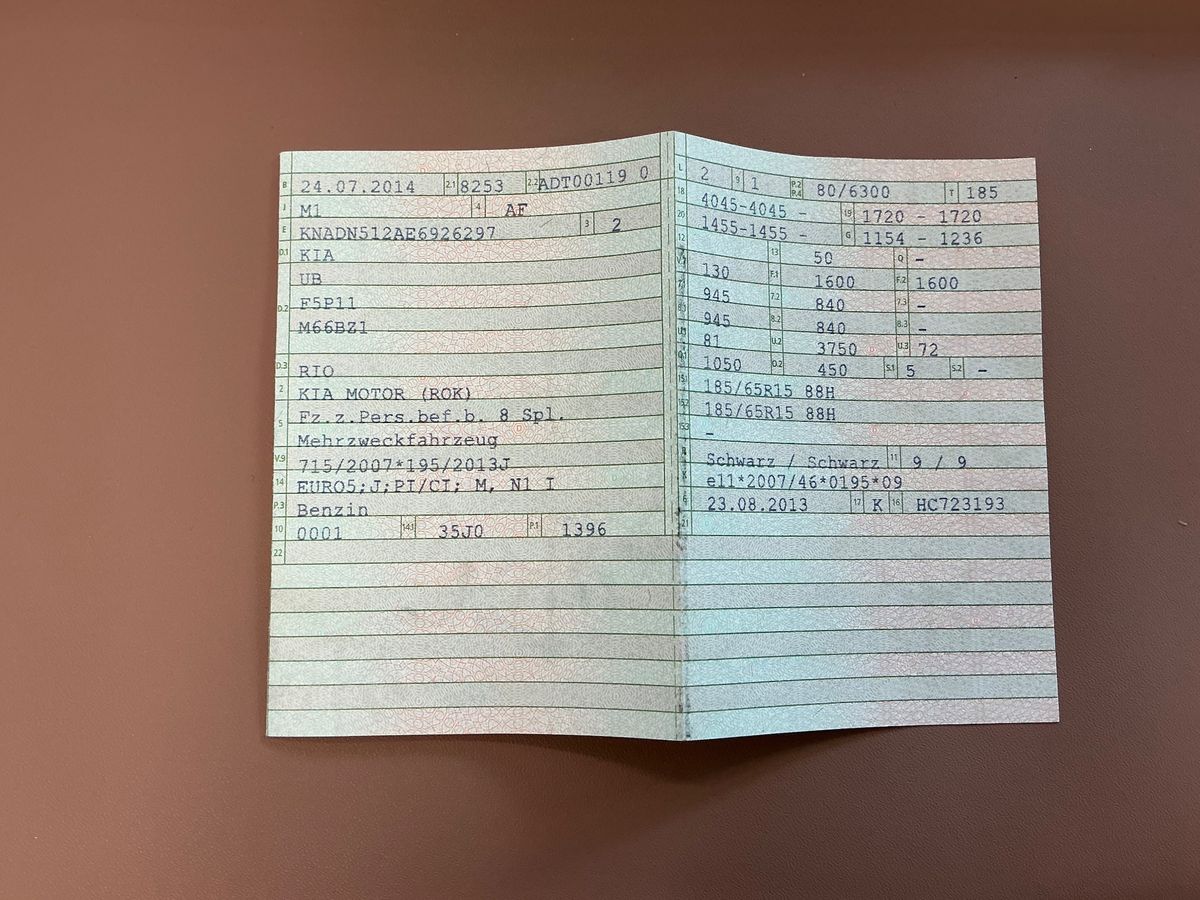 B 24.07.2014 2.1 8253 2.2 ADT00119 0
J M1 4 AF
E KNADN512AE6926297 3 2
D.1 KIA
UB
D.2 F5P11
M66BZ1
D.3 RIO
2 KIA MOTOR (ROK)
5 Fz.z.Pers.bef.b. 8 Spl.
Mehrzweckfahrzeug
V.9 715/2007*195/2013J
14 EURO5;J;PI/CI; M, N1 I
P.3 Benzin
10 0001 14.1 35J0 P.1 1396
22
L 2 9 1 P.2 P.4 80/6300 T 185
18 4045-4045 - 19 1720 - 1720
20 1455-1455 - G 1154 - 1236
12 13 50 Q -
V.7 130 F.1 1600 F.2 1600
7.1 945 7.2 840 7.3 -
8.1 945 8.2 840 8.3 -
U.1 81 U.2 3750 U.3 72
O.1 1050 O.2 450 S.1 5 S.2 -
15.1 185/65R15 88H
15.2 185/65R15 88H
15.3 -
R Schwarz / Schwarz 11 9 / 9
K e11*2007/46*0195*09
6 23.08.2013 17 K 16 HC723193
21